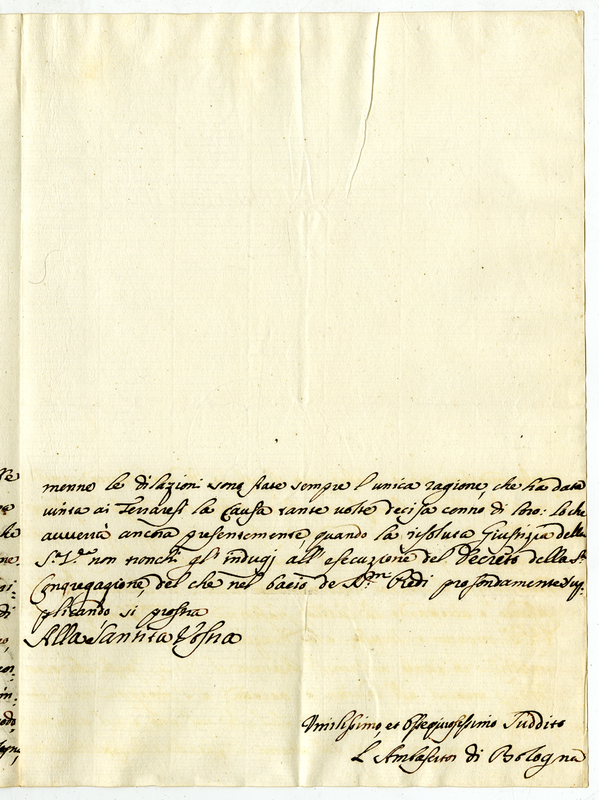 mente le dilazioni sono state sempre l'unica ragione, che ha data
vinta ai Ferraresi la Causa tante volte decisa contro di loro: lo che
avverrà ancora presentemente, quando la risoluta Giustizia della
S.tà V.ra non tronchi gl'indugj all'esecuzione del Decreto della S.
Congregazione, del che nel bacio de S.mi Piedi profondamente sup-
plicando si prostra
Alla Santità Vostra
Umilissimo, et Ossequiosissimo Suddito
L'Ambasciator di Bologna